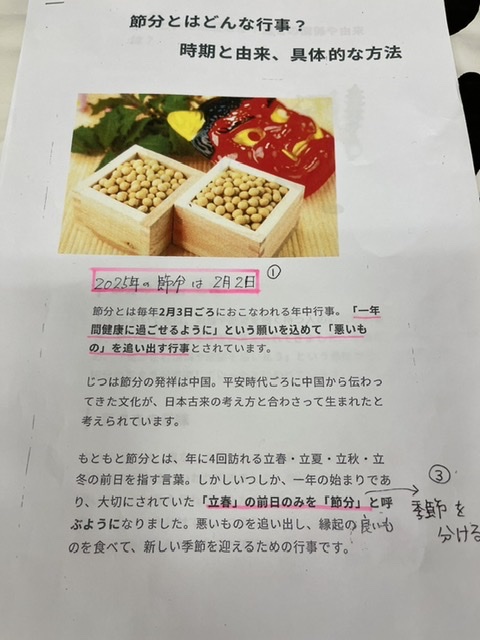 節分とはどんな行事？
時期と由来、具体的な方法
2025年の節分は2月2日
①
節分とは毎年2月3日ごろにおこなわれる年中行事。「一年
間健康に過ごせるように」という願いを込めて「悪いも
の」を追い出す行事とされています。
じつは節分の発祥は中国。平安時代ごろに中国から伝わっ
てきた文化が、日本古来の考え方と合わさって生まれたと
考えられています。
もともと節分とは、年に4回訪れる立春・立夏・立秋・立
冬の前日を指す言葉。しかしいつしか、一年の始まりであ
り、大切にされていた「立春」の前日のみを「節分」と呼
ぶようになりました。悪いものを追い出し、縁起の良いも
のを食べて、新しい季節を迎えるための行事です。
③
季節を
分ける